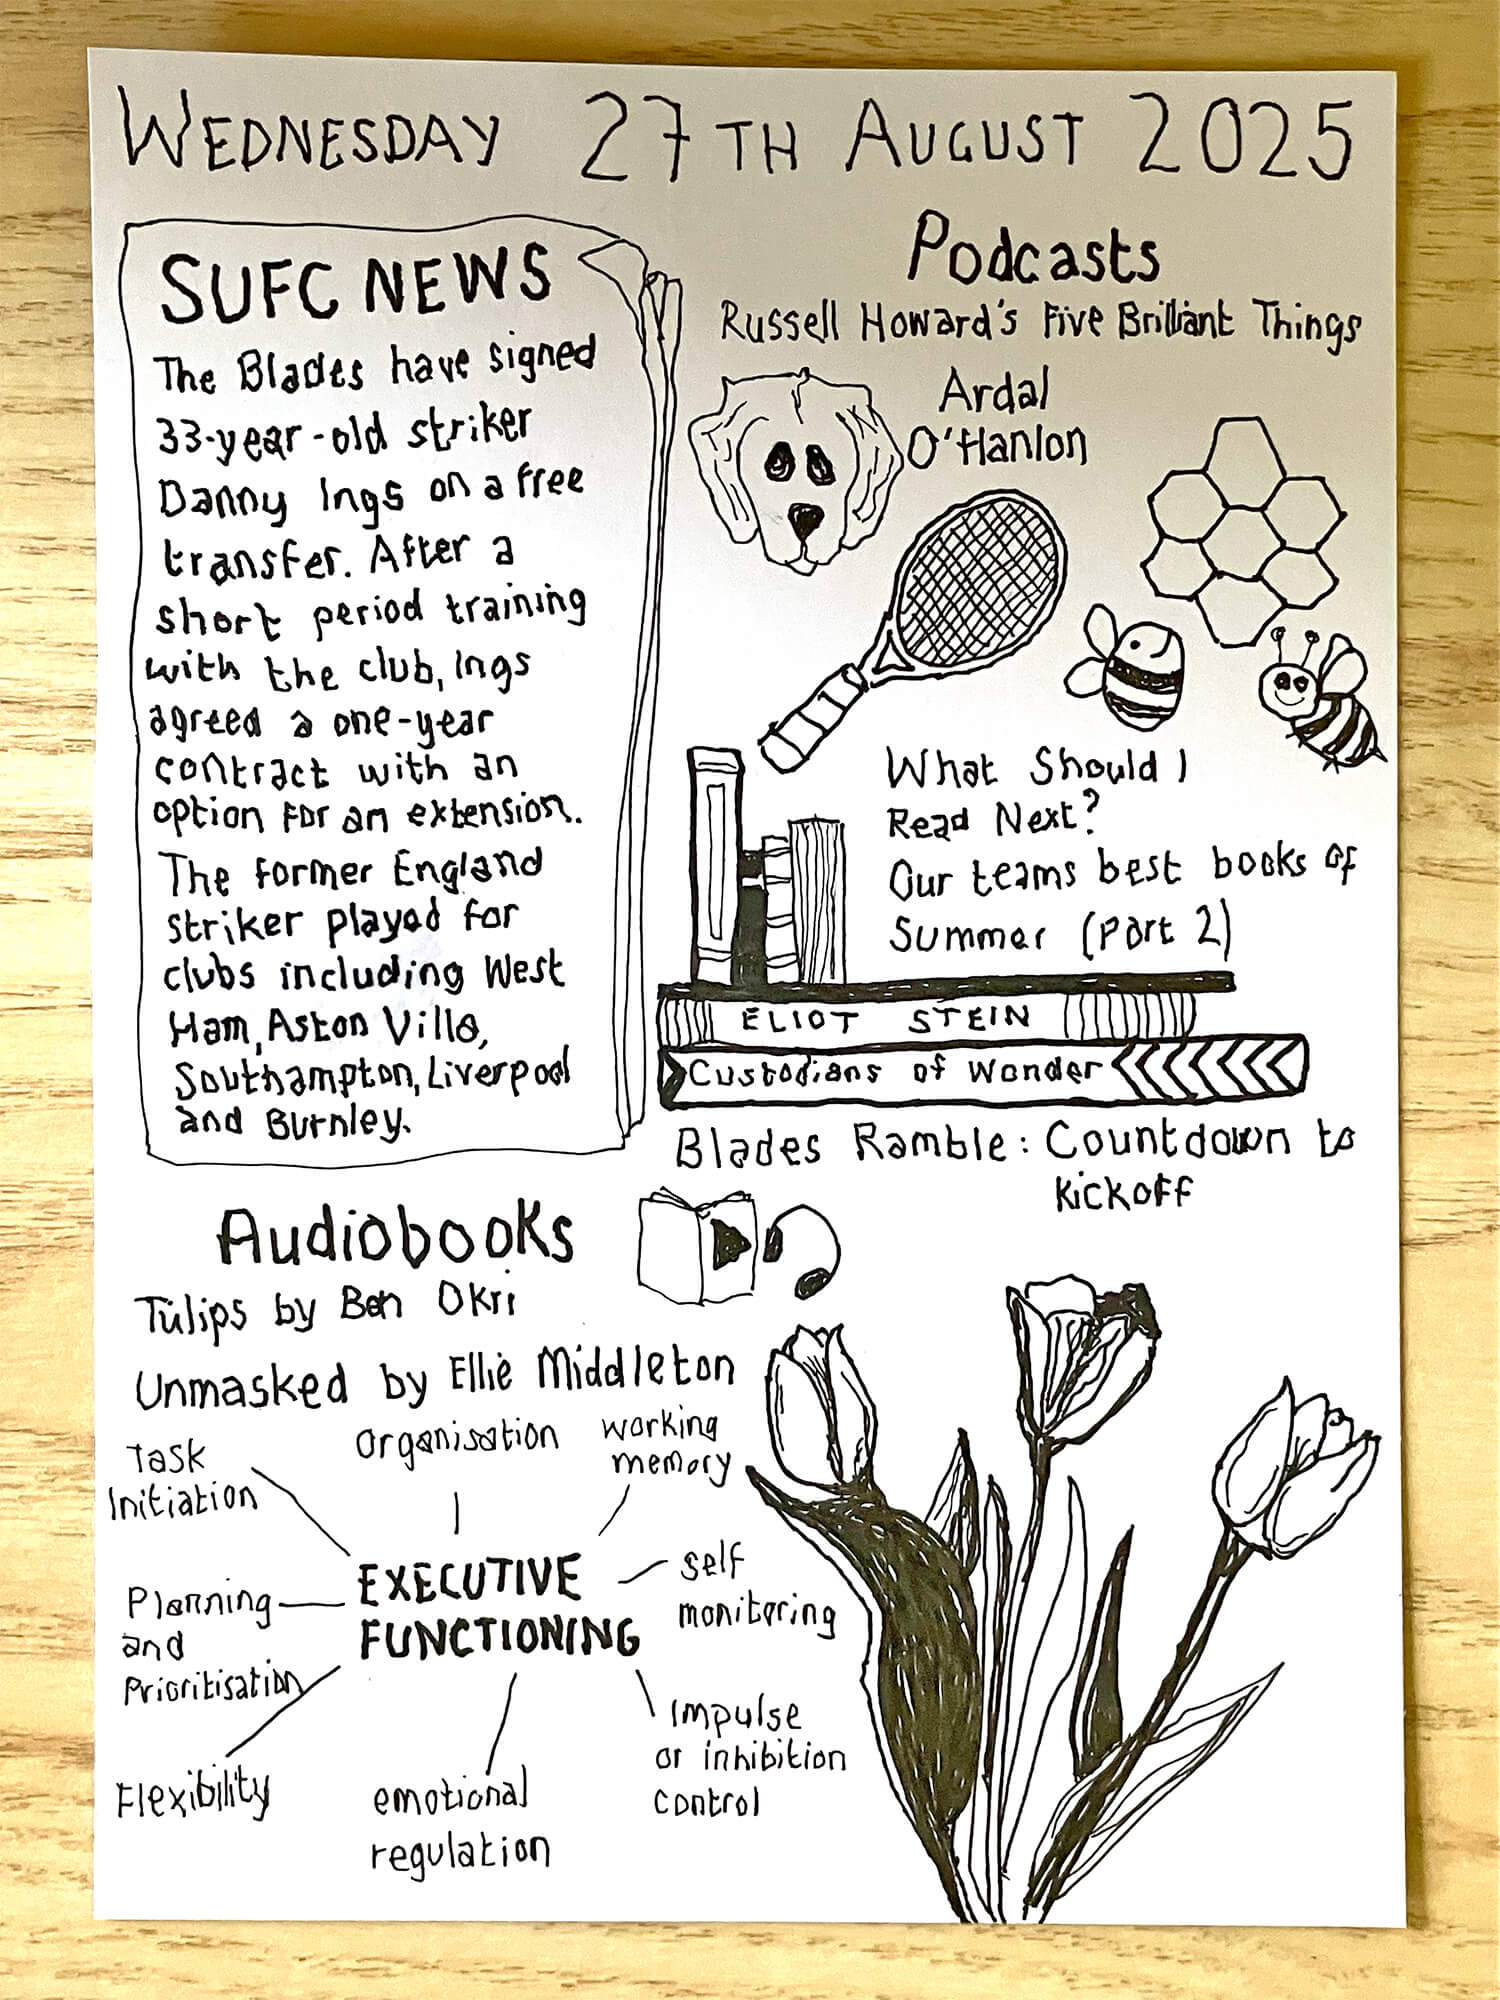 WEDNESDAY 27TH AUGUST 2025
SUFC NEWS
The Blades have signed
33-year-old striker
Danny Ings on a free
transfer. After a
short period training
with the club, Ings
agreed a one-year
contract with an
option for an extension.
The former England
striker played for
clubs including West
Ham, Aston Villa,
Southampton, Liverpool
and Burnley.
Podcasts
Russell Howard's Five Brilliant Things
Ardal
O'Hanlon
What Should I
Read Next?
Our teams best books of
Summer (Part 2)
ELIOT STEIN
Custodians of Wonder
Blades Ramble: Countdown to
Kickoff
Audiobooks
Tulips by Ben Okri
Unmasked by Ellie Middleton
Task
Initiation
organisation
working
memory
EXECUTIVE
FUNCTIONING
self
monitoring
Planning
and
Prioritisation
Flexibility
emotional
regulation
Impulse
or inhibition
control